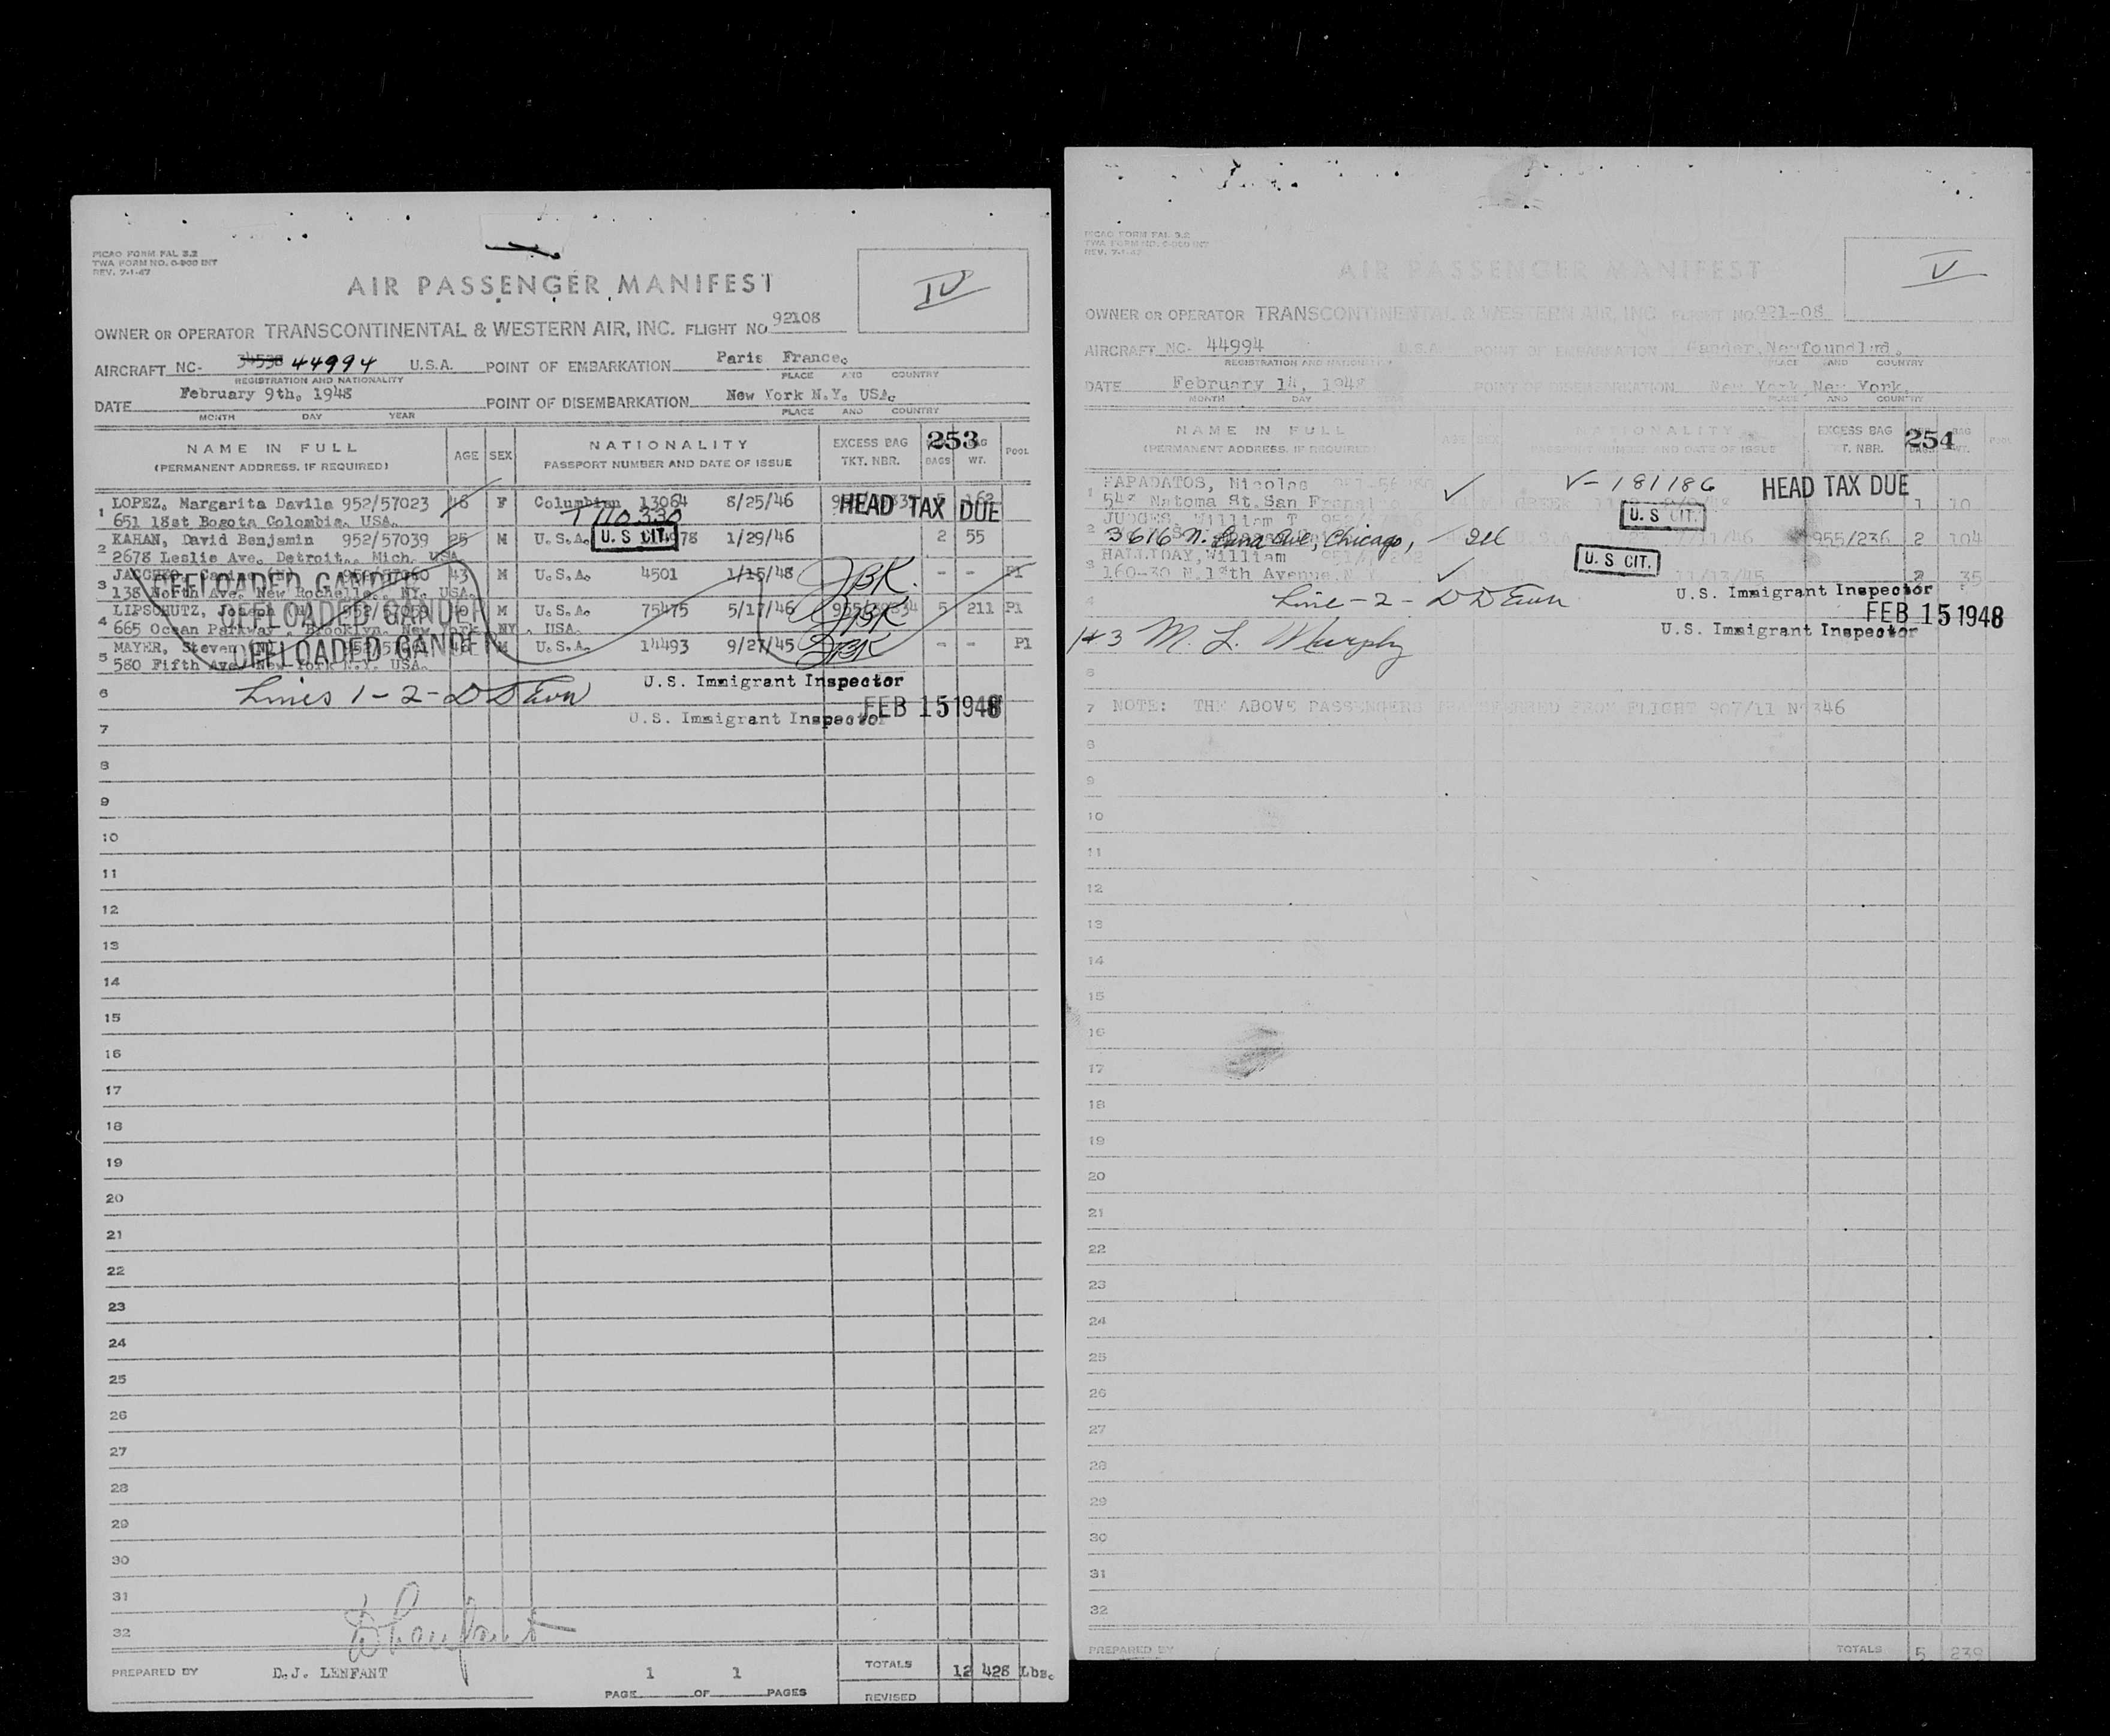 PICAO FORM FAL 3.2
TWA FORM NO. 0-900 INT
REV. 7-1-47
IV
AIR PASSENGER MANIFEST
OWNER OR OPERATOR TRANSCONTINENTAL & WESTERN AIR, INC. FLIGHT NO 92108
AIRCRAFT NC- 34538 44994 U.S.A. POINT OF EMBARKATION Paris France.
REGISTRATION AND NATIONALITY PLACE AND COUNTRY
DATE February 9th. 1948 POINT OF DISEMBARKATION New York N.Y. USA.
MONTH DAY YEAR PLACE AND COUNTRY
NAME IN FULL AGE SEX NATIONALITY EXCESS BAG 253 BAG POOL
(PERMANENT ADDRESS. IF REQUIRED) PASSPORT NUMBER AND DATE OF ISSUE TKT. NBR. BAGS WT.
1 LOPEZ, Margarita Davila 952/57023 46 F Columbian 13064 8/25/46 HEAD TAX DUE 5 162
651 18st Bogota Colombia. USA. T 110330
2 KAHAN, David Benjamin 952/57039 25 M U.S.A. U.S CIT. 78 1/29/46 2 55
2678 Leslie Ave. Detroit., Mich. USA.
3 43 M U.S.A. 4501 1/15/48 JBK. - - P1
138 North Ave. New Rochelle., NY. USA.
OFFLOADED GANDER
4 LIPSCHUTZ, Joseph 40 M U.S.A. 75475 5/17/46 JBK 5 211 P1
665 Ocean Parkway, Brooklyn. New York NY, USA.
OFFLOADED GANDER
5 MAYER, Steven 46 M U.S.A. 14493 9/27/45 JBK - - P1
580 Fifth Ave. New York N.Y. USA.
OFFLOADED GANDER
6 Lines 1-2- U.S. Immigrant Inspector
FEB 15 1948
7 U.S. Immigrant Inspector
8
9
10
11
12
13
14
15
16
17
18
19
20
21
22
23
24
25
26
27
28
29
30
31
32
PREPARED BY D.J. LENFANT 1 1 TOTALS 12 428 Lbs.
PAGE OF PAGES REVISED
PICAO FORM FAL 3.2
TWA FORM NO. 0-900 INT
REV. 7-1-47
V
AIR PASSENGER MANIFEST
OWNER OR OPERATOR TRANSCONTINENTAL & WESTERN AIR, INC. FLIGHT NO. 921-08
AIRCRAFT NC- 44994 U.S.A. POINT OF EMBARKATION Gander, Newfoundland.
REGISTRATION AND NATIONALITY PLACE AND COUNTRY
DATE February 14, 1948 POINT OF DISEMBARKATION New York, New York.
MONTH DAY YEAR PLACE AND COUNTRY
NAME IN FULL AGE SEX NATIONALITY EXCESS BAG 254 BAG POOL
(PERMANENT ADDRESS. IF REQUIRED) PASSPORT NUMBER AND DATE OF ISSUE TKT. NBR. BAGS WT.
1 PAPADATOS, Nicolas V-181186 HEAD TAX DUE 1 10
Natoma St. San
2 JUDGES, William T U.S CIT. 955/236 2 104
3616 N. Luna Ave, Chicago, Ill
3 HALLIDAY, William U.S CIT. 2 35
160-30 N. Avenue, 11/13/45
4 Line-2- U.S. Immigrant Inspector
FEB 15 1948
1+3 M. L. Murphy U.S. Immigrant Inspector
6
7 NOTE: THE ABOVE PASSENGERS TRANSFERRED FROM FLIGHT 907/11 N 346
8
9
10
11
12
13
14
15
16
17
18
19
20
21
22
23
24
25
26
27
28
29
30
31
32
PREPARED BY TOTALS 5 239